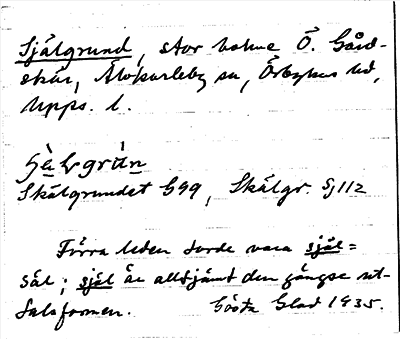 Själgrund, stor holme Ö. Gård-
skär, Älvkarleby sn, Örbyhus hd,
Upps. l.
Skälgrundet G99, Skälgr. Sj112
Förra leden torde vara själ =
säl; själ är alltjämt den gängse ut-
talsformen. Gösta Glad 1935.